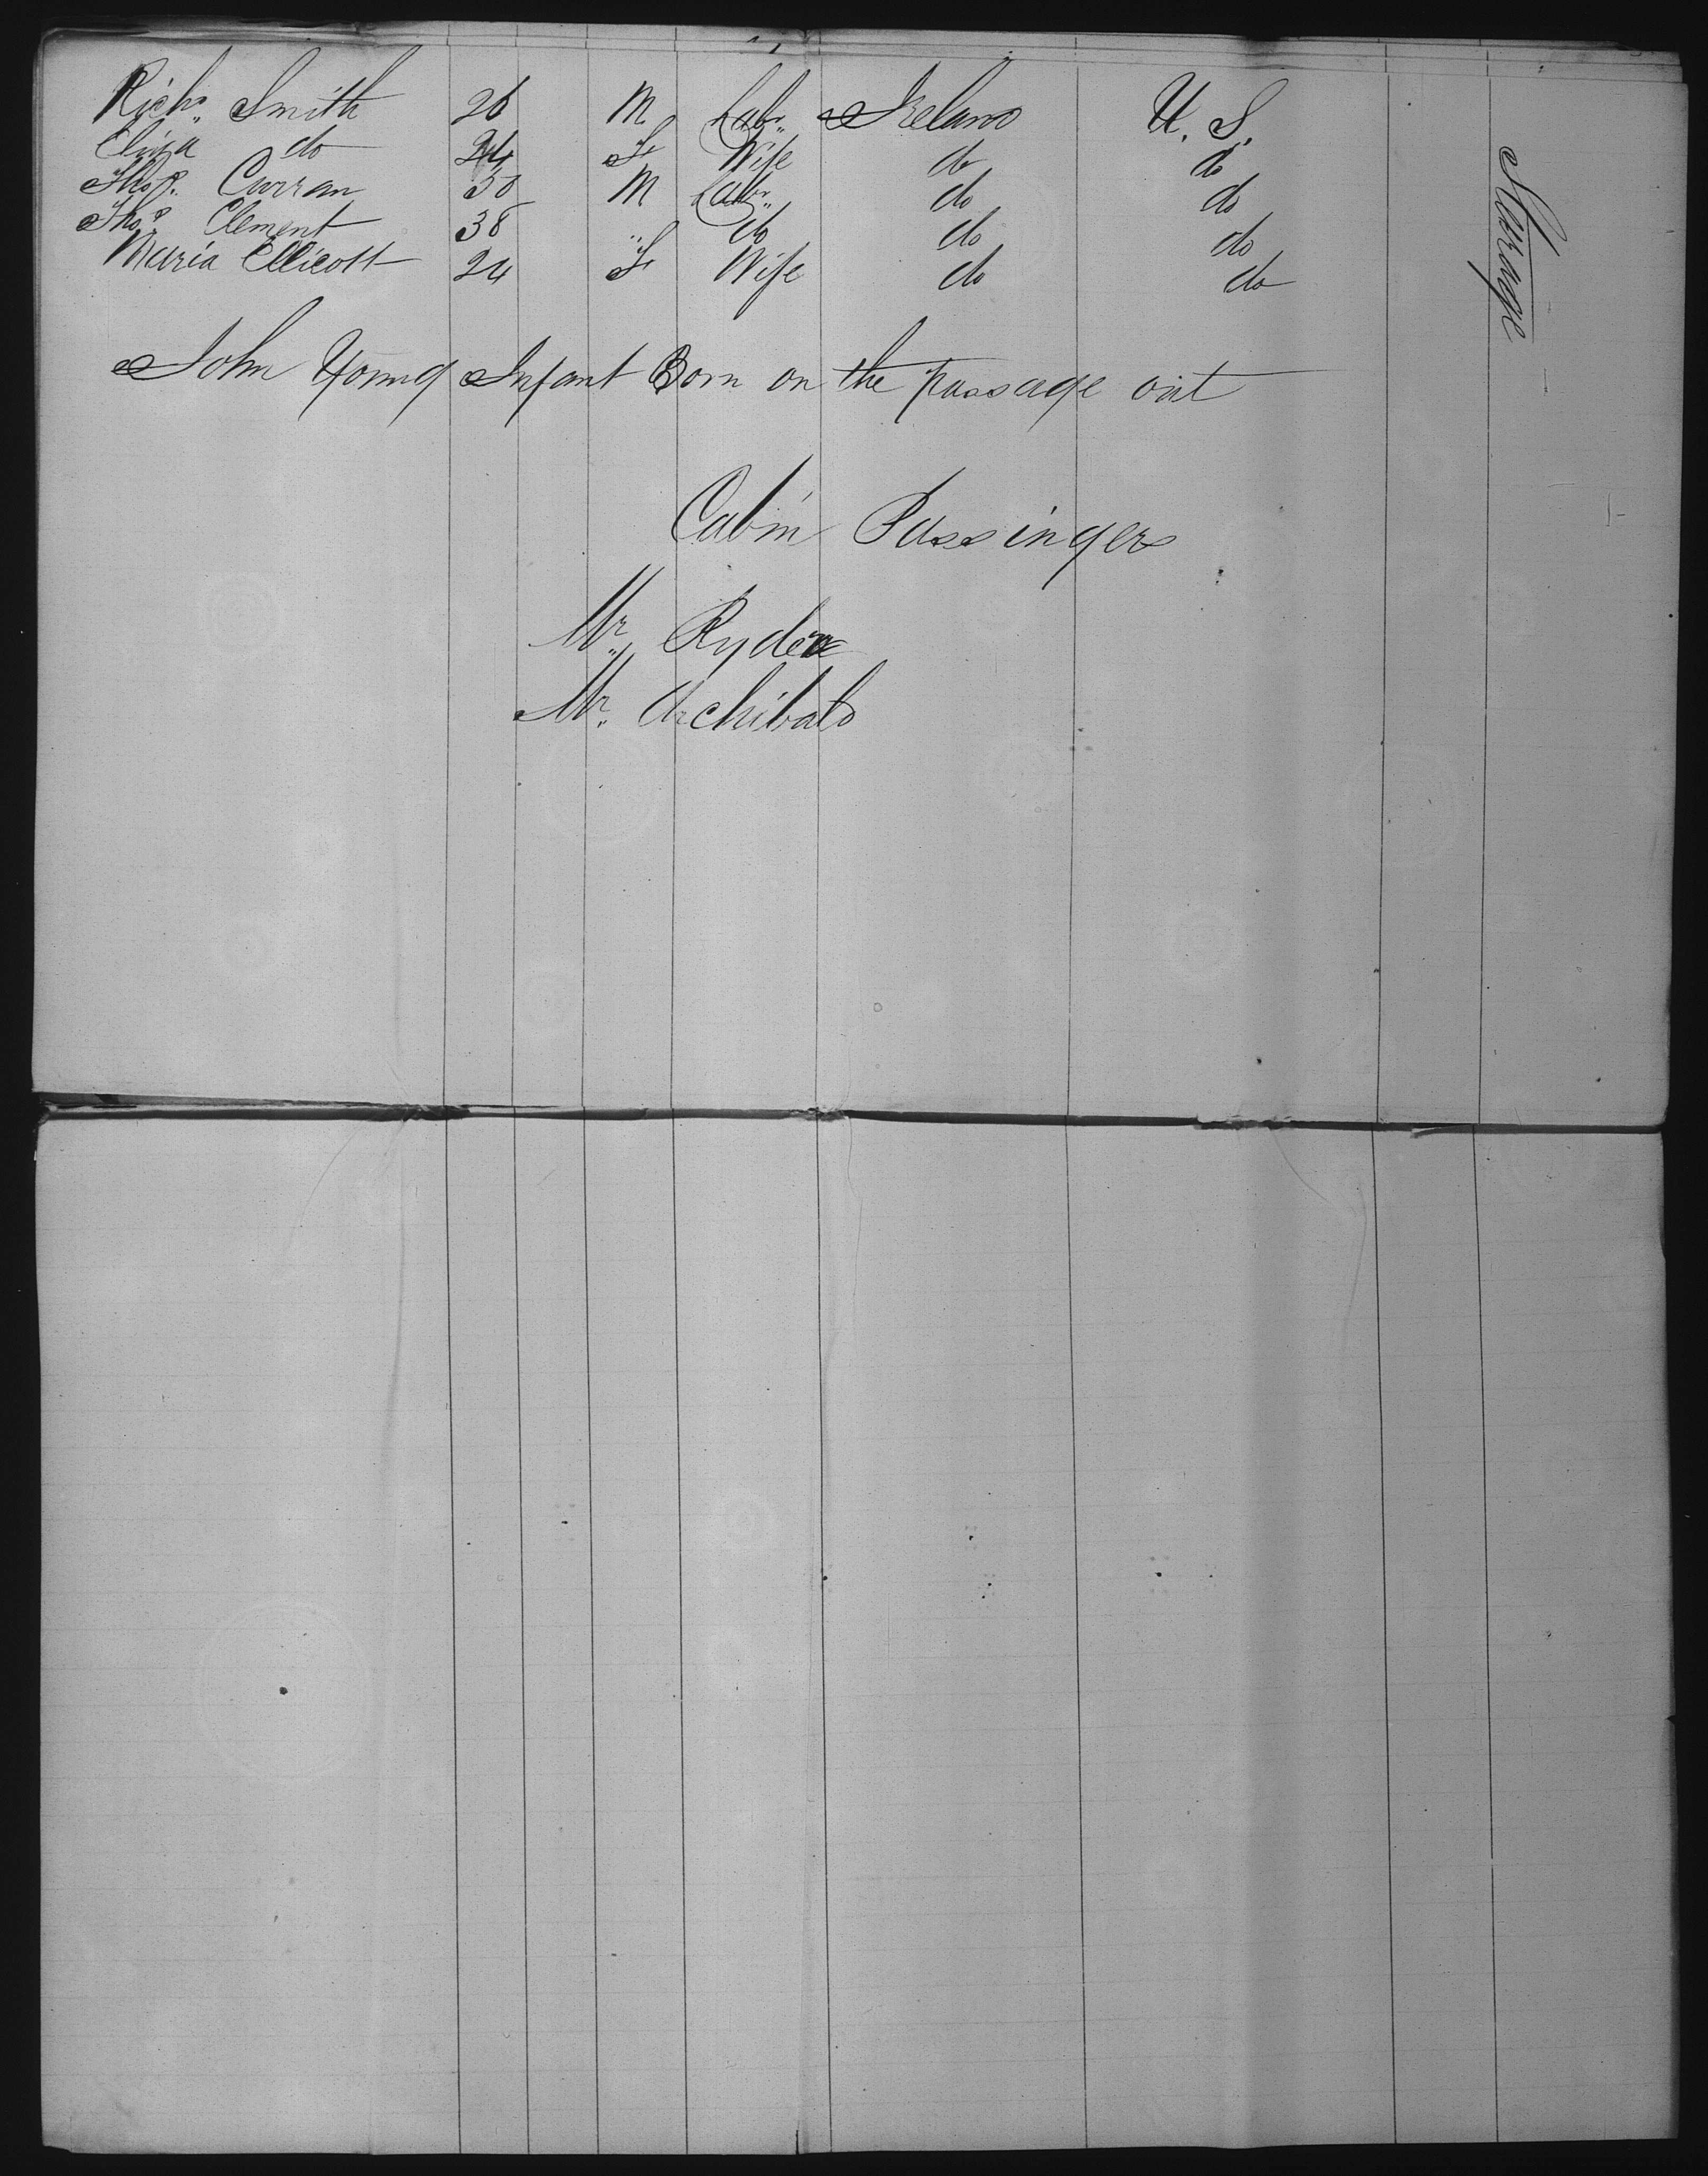 Richd. Smith 26 M Labr. Ireland U. S.
Eliza do 24 F Wife do do
Thos. Curran 30 M Labr. do do
Thos. Clement 38 " do do do
Maria Ellicott 24 F Wife do do
Steerage
John Young Infant Born on the passage out
Cabin Passingers
Mr. Ryder
Mr. Archibald